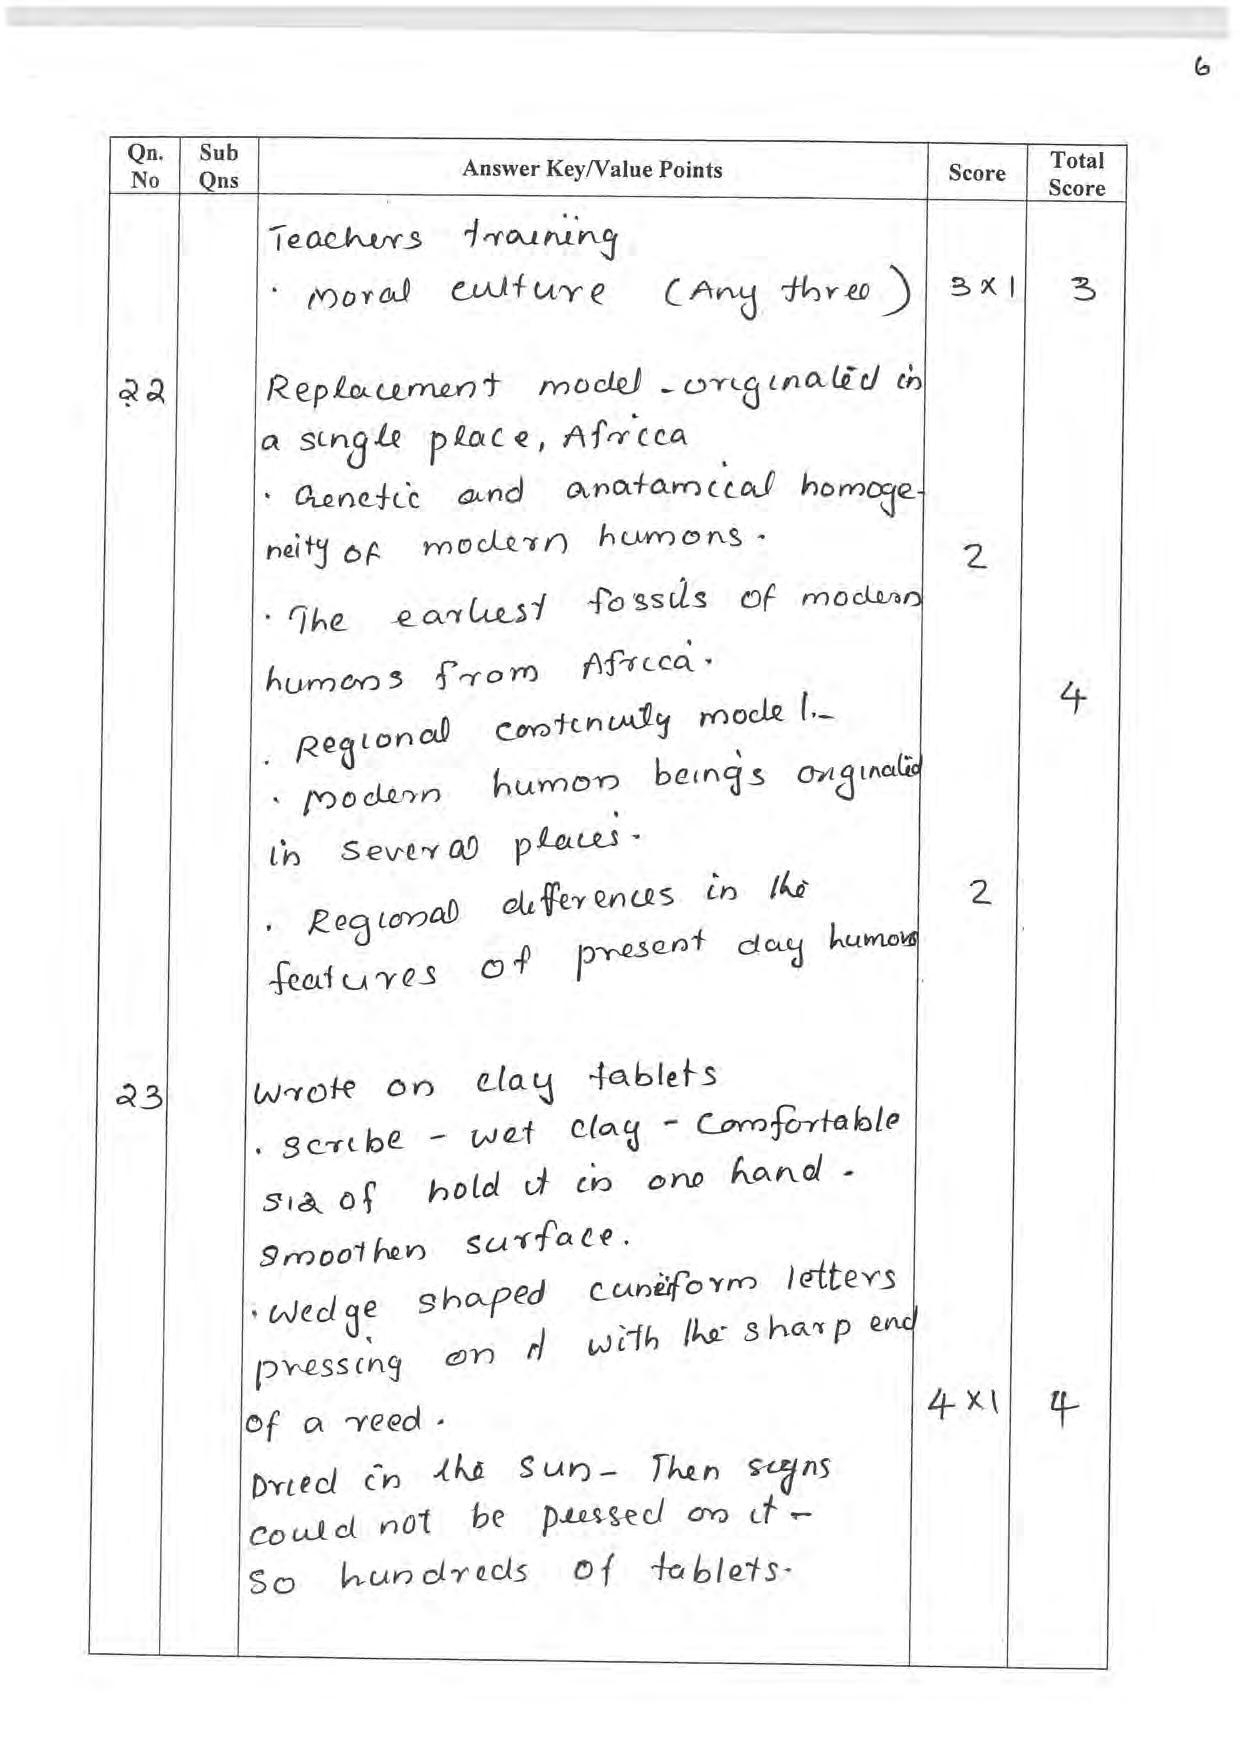 6
Qn. No
Sub Qns
Answer Key/Value Points
Score
Total Score
Teachers training
· Moral culture (Any three) 3 x 1 3
22 Replacement model - originated in
a single place, Africa
· Genetic and anatamical homoge-
neity of modern humons.
2
· The earliest fossils of modern
humans from Africa.
4
· Regional continuity model.-
· Modern human being's originated
in several places.
· Regional differences in the 2
features of present day humans
23 Wrote on clay tablets
· Scribe - wet clay - Comfortable
siz of hold it in one hand.
Smoothen surface.
· Wedge shaped cuneiform letters
pressing on it with the sharp end
4 x 1 4
of a reed.
Dried in the sun - Then signs
could not be pressed on it -
So hundreds of tablets.